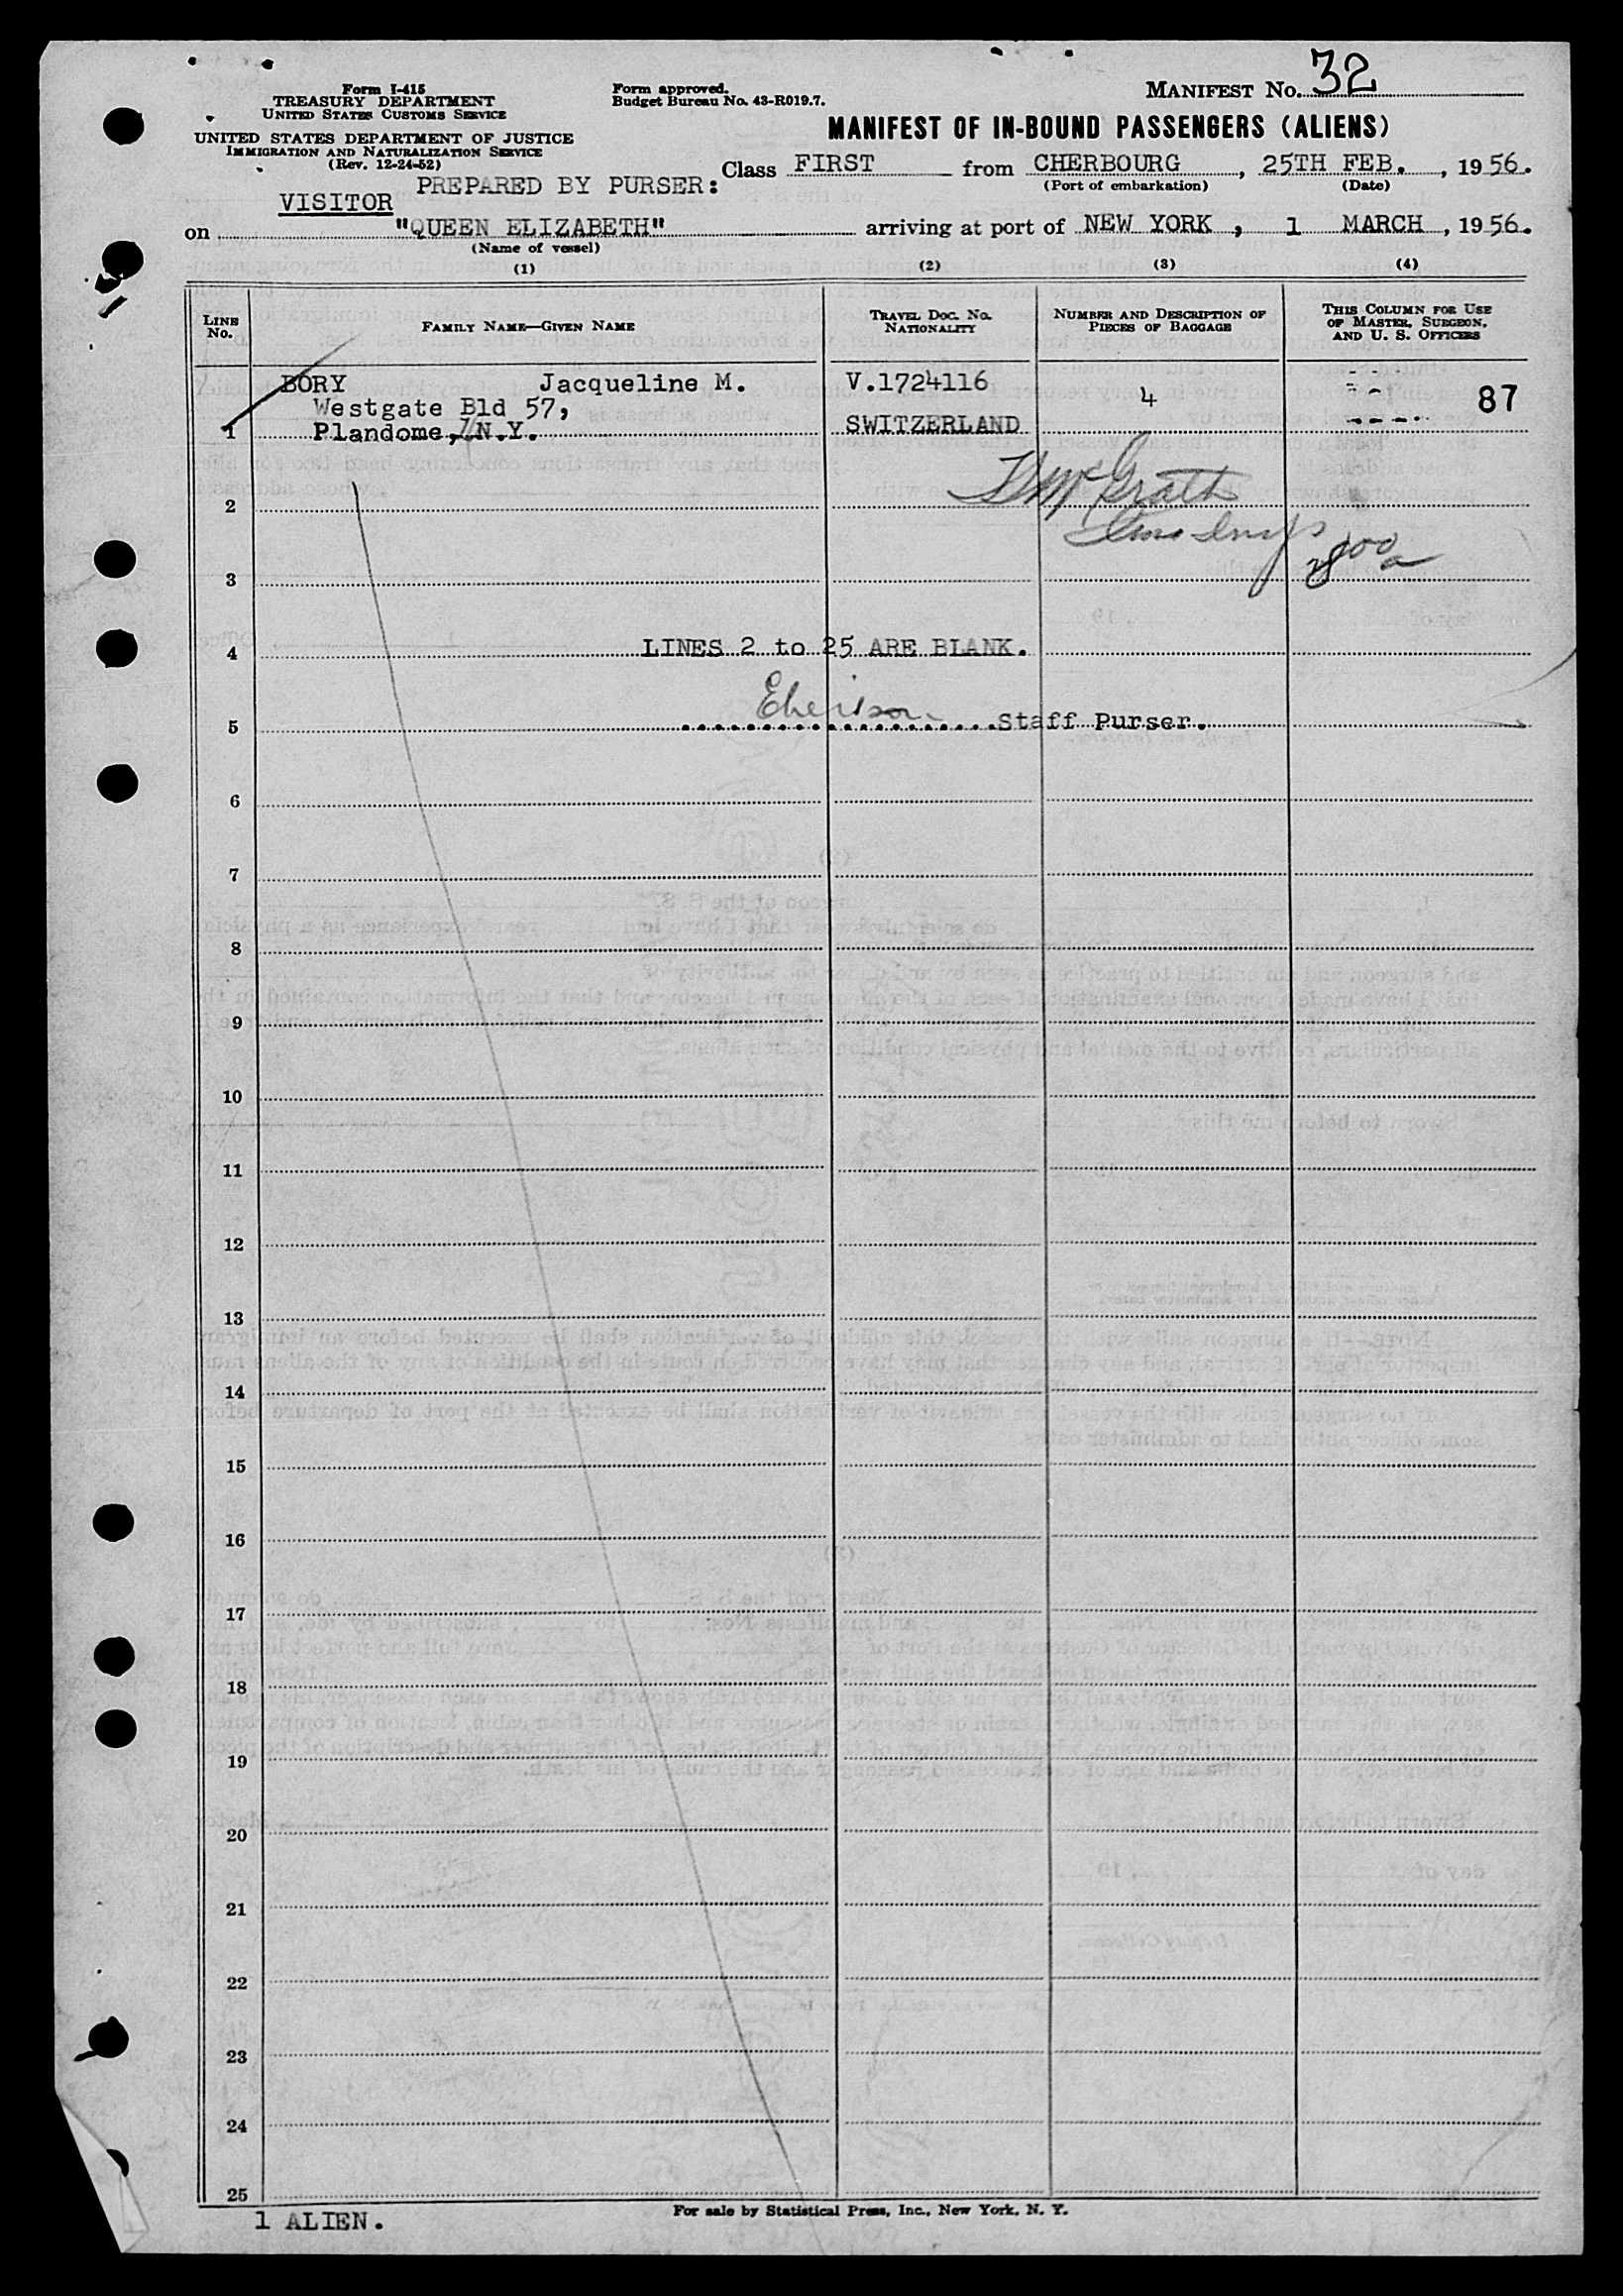 Form I-415
TREASURY DEPARTMENT
UNITED STATES CUSTOMS SERVICE
UNITED STATES DEPARTMENT OF JUSTICE
IMMIGRATION AND NATURALIZATION SERVICE
(Rev. 12-24-52)
Form approved.
Budget Bureau No. 43-R019.7.
MANIFEST No. 32
MANIFEST OF IN-BOUND PASSENGERS (ALIENS)
PREPARED BY PURSER: Class FIRST from CHERBOURG, 25TH FEB., 1956.
(Port of embarkation) (Date)
VISITOR
on "QUEEN ELIZABETH" arriving at port of NEW YORK, 1 MARCH, 1956.
(Name of vessel)
(1) (2) (3) (4)
LINE No. FAMILY NAME—GIVEN NAME TRAVEL DOC. No. NATIONALITY NUMBER AND DESCRIPTION OF PIECES OF BAGGAGE THIS COLUMN FOR USE OF MASTER, SURGEON, AND U. S. OFFICERS
BORY Jacqueline M. V.1724116 4 87
Westgate Bld 57,
1 Plandome, N.Y. SWITZERLAND
McGrath
2
3
4 LINES 2 to 25 ARE BLANK.
5 Staff Purser.
6
7
8
9
10
11
12
13
14
15
16
17
18
19
20
21
22
23
24
25
For sale by Statistical Press, Inc., New York, N. Y.
1 ALIEN.